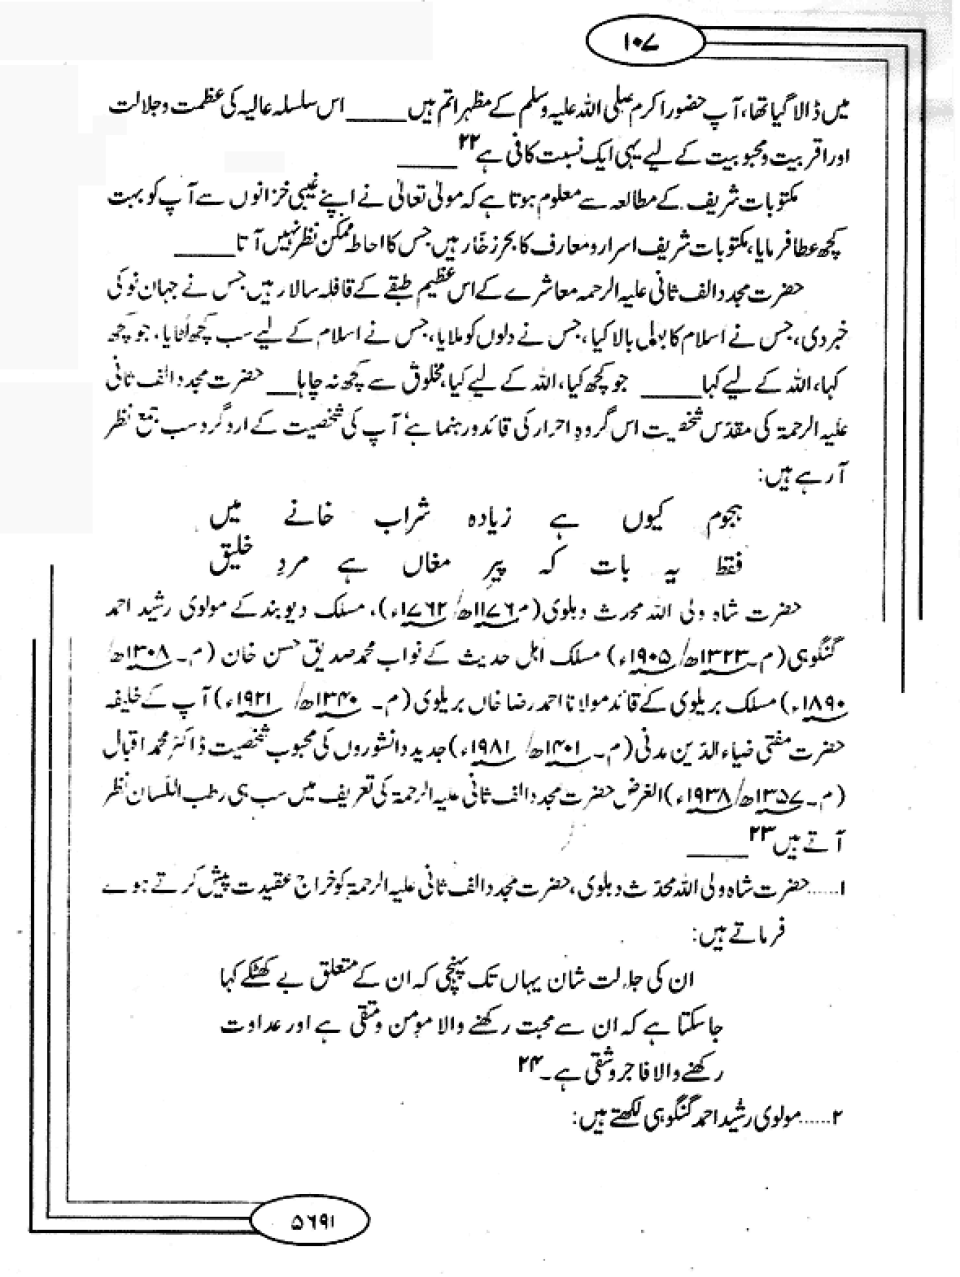 ۱۰۷
میں ڈالا گیا تھا، آپ حضور اکرم صلی اللہ علیہ وسلم کے مظہر اتم ہیں ____ اس سلسلہ عالیہ کی عظمت و جلالت
اور اقربیت و محبوبیت کے لیے یہی ایک نسبت کافی ہے ۲۲ ____
مکتوبات شریف کے مطالعہ سے معلوم ہوتا ہے کہ مولیٰ تعالیٰ نے اپنے غیبی خزانوں سے آپ کو بہت
کچھ عطا فرمایا، مکتوبات شریف اسرار و معارف کا بحر زخّار ہیں جس کا احاطہ ممکن نظر نہیں آتا ____
حضرت مجدد الف ثانی علیہ الرحمہ معاشرے کے اس عظیم طبقے کے قافلہ سالار ہیں جس نے جہان نو کی
خبر دی، جس نے اسلام کا بول بالا کیا، جس نے دلوں کو ملایا، جس نے اسلام کے لیے سب کچھ لٹایا۔ جو کچھ
کہا، اللہ کے لیے کہا ____ جو کچھ کیا، اللہ کے لیے کیا، مخلوق سے کچھ نہ چاہا __ حضرت مجدد الف ثانی
علیہ الرحمۃ کی مقدّس شخصیت اس گروہِ احرار کی قائد و رہنما ہے، آپ کی شخصیت کے ارد گرد سب جمع نظر
آرہے ہیں:
ہجوم کیوں ہے زیادہ شراب خانے میں
فقط یہ بات کہ پیرِ مغاں ہے مردِ خلیق
حضرت شاہ ولی اللہ محدث دہلوی (م ۱۱۷۶ھ/ ۱۷۶۲ء)، مسلک دیوبند کے مولوی رشید احمد
گنگوہی (م۔ ۱۳۲۳ھ/ ۱۹۰۵ء) مسلک اہل حدیث کے نواب محمد صدیق حسن خان (م۔ ۱۳۰۸ھ/
۱۸۹۰ء) مسلک بریلوی کے قائد مولانا احمد رضا خاں بریلوی (م۔ ۱۳۴۰ھ/ ۱۹۲۱ء) آپ کے خلیفہ
حضرت مفتی ضیاء الدین مدنی (م۔ ۱۴۰۱ھ/ ۱۹۸۱ء) جدید دانشوروں کی محبوب شخصیت ڈاکٹر محمد اقبال
(م۔ ۱۳۵۷ھ/ ۱۹۳۸ء) الغرض حضرت مجدد الف ثانی علیہ الرحمۃ کی تعریف میں سب ہی رطب اللسان نظر
آتے ہیں ۲۳ ____
۱..... حضرت شاہ ولی اللہ محدّث دہلوی، حضرت مجدد الف ثانی علیہ الرحمۃ کو خراج عقیدت پیش کرتے ہوے
فرماتے ہیں:
ان کی جلالت شان یہاں تک پہنچی کہ ان کے متعلق بے کھٹکے کہا
جاسکتا ہے کہ ان سے محبت رکھنے والا مومن و متقی ہے اور عداوت
رکھنے والا فاجر و شقی ہے۔ ۲۴
۲...... مولوی رشید احمد گنگوہی لکھتے ہیں:
۵۶۹۱